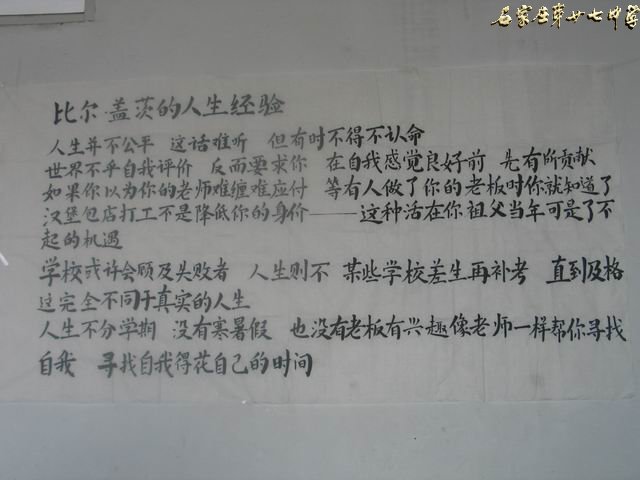 石家庄第廿七中学
比尔 盖茨的人生经验
人生并不公平 这话难听 但有时不得不认命
世界不乎自我评价 反而要求你 在自我感觉良好前 先有所贡献
如果你以为你的老师难缠难应付 等有人做了你的老板时你就知道了
汉堡包店打工不是降低你的身价——这种活在你祖父当年可是了不
起的机遇
学校或许会顾及失败者 人生则不 某些学校差生再补考 直到及格
这完全不同于真实的人生
人生不分学期 没有寒暑假 也没有老板有兴趣像老师一样帮你寻找
自我 寻找自我得花自己的时间